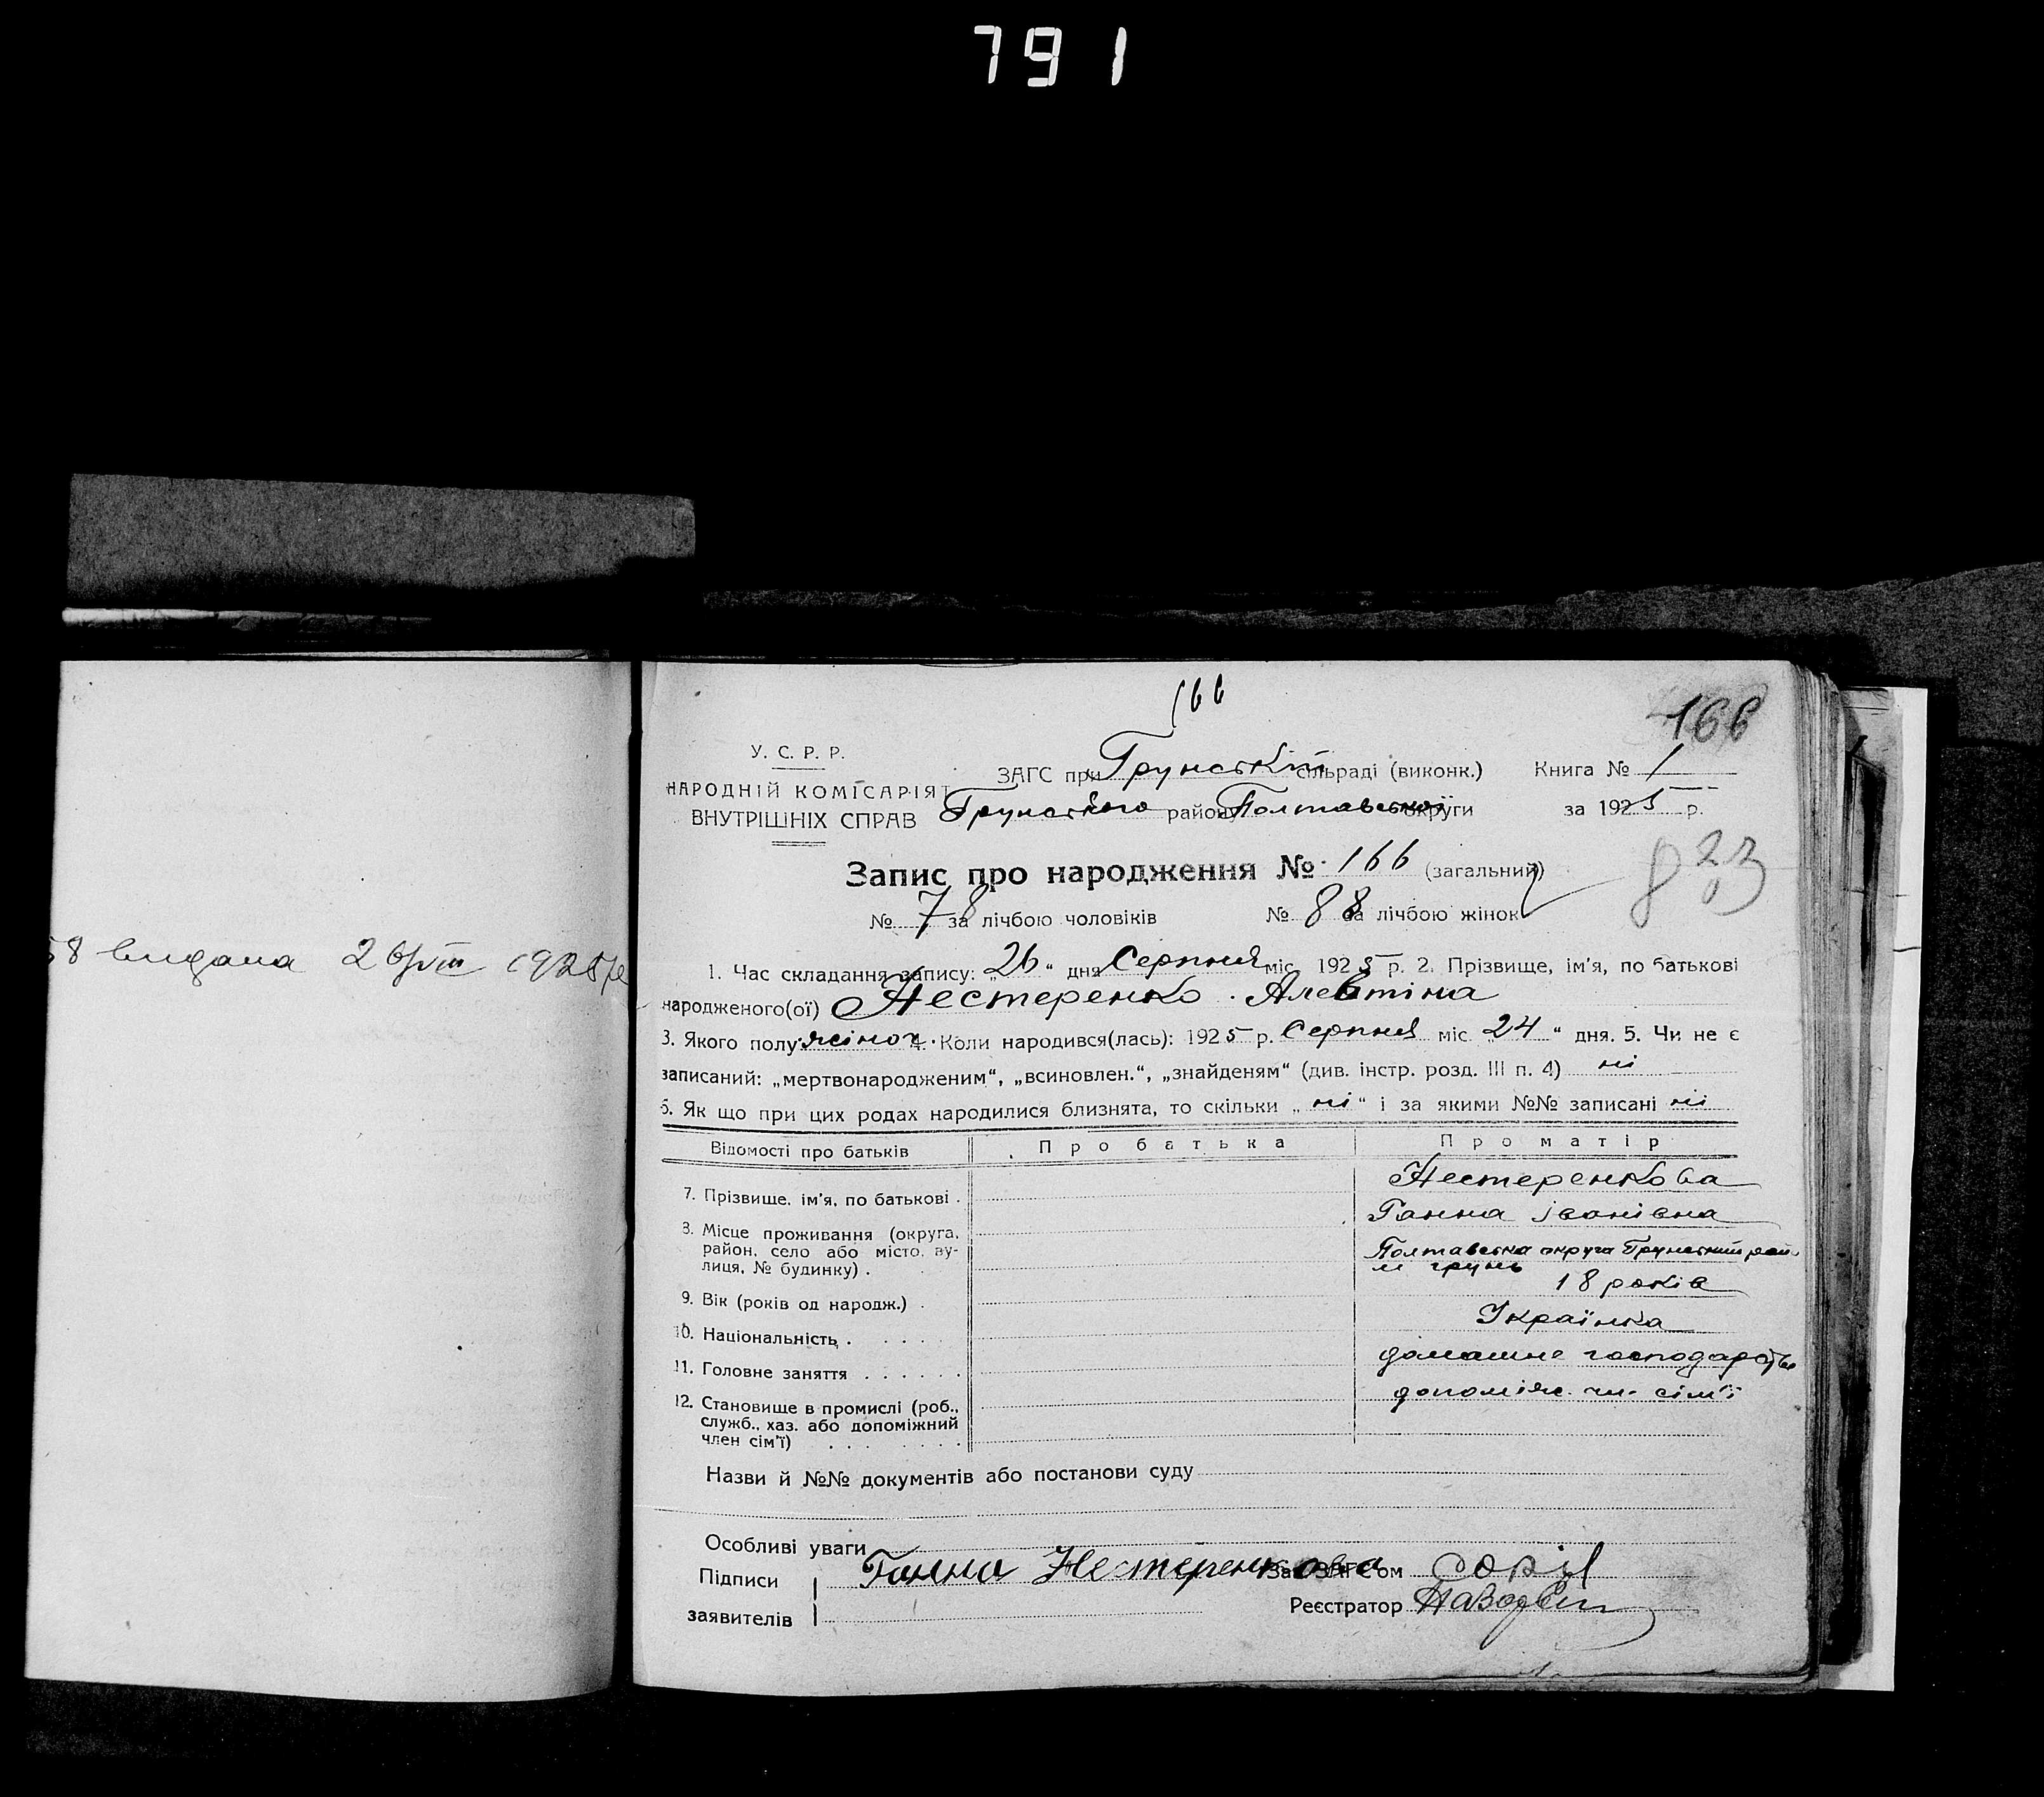 791
166
166
У. С. Р. Р.
НАРОДНІЙ КОМІСАРІЯТ
ВНУТРІШНІХ СПРАВ
ЗАГС при Грунській сільраді (виконк.) Книга № 1
Грунського району Полтавської округи за 1925 р.
Запис про народження № 166 (загальний)
№ 78 за лічбою чоловіків № 88 за лічбою жінок
823
58 видана 26/VIII 1925 р
1. Час складання запису: „26“ дня Серпня міс. 1925 р. 2. Прізвище, ім'я, по батькові
народженого(ої) Нестеренко Алевтіна
3. Якого полу жіноч. 4. Коли народився(лась): 1925 р. Серпня міс. „24“ дня. 5. Чи не є
записаний: „мертвонародженим“, „всиновлен.“, „знайденям“ (див. інстр. розд. III п. 4) ні
6. Як що при цих родах народилися близнята, то скільки „ні“ і за якими №№ записані ні
Відомості про батьків Про батька Про матір
7. Прізвище, ім'я, по батькові . Нестеренкова
Ганна Іванівна
8. Місце проживання (округа,
район, село або місто, ву-
лиця, № будинку) .
Полтавська округа Грунський рай
м грунь
9. Вік (років од народж.) . 18 років
10. Національність . . . . . Українка
11. Головне заняття . . . . . . домашнє господарство
12. Становище в промислі (роб.,
служб., хаз. або допоміжний
член сім'ї) . . . . . . .
допоміж. чл. сім'ї
Назви й №№ документів або постанови суду
Особливі уваги
Підписи Ганна Нестеренкова Зав. ЗАГС'ом
заявителів Реєстратор